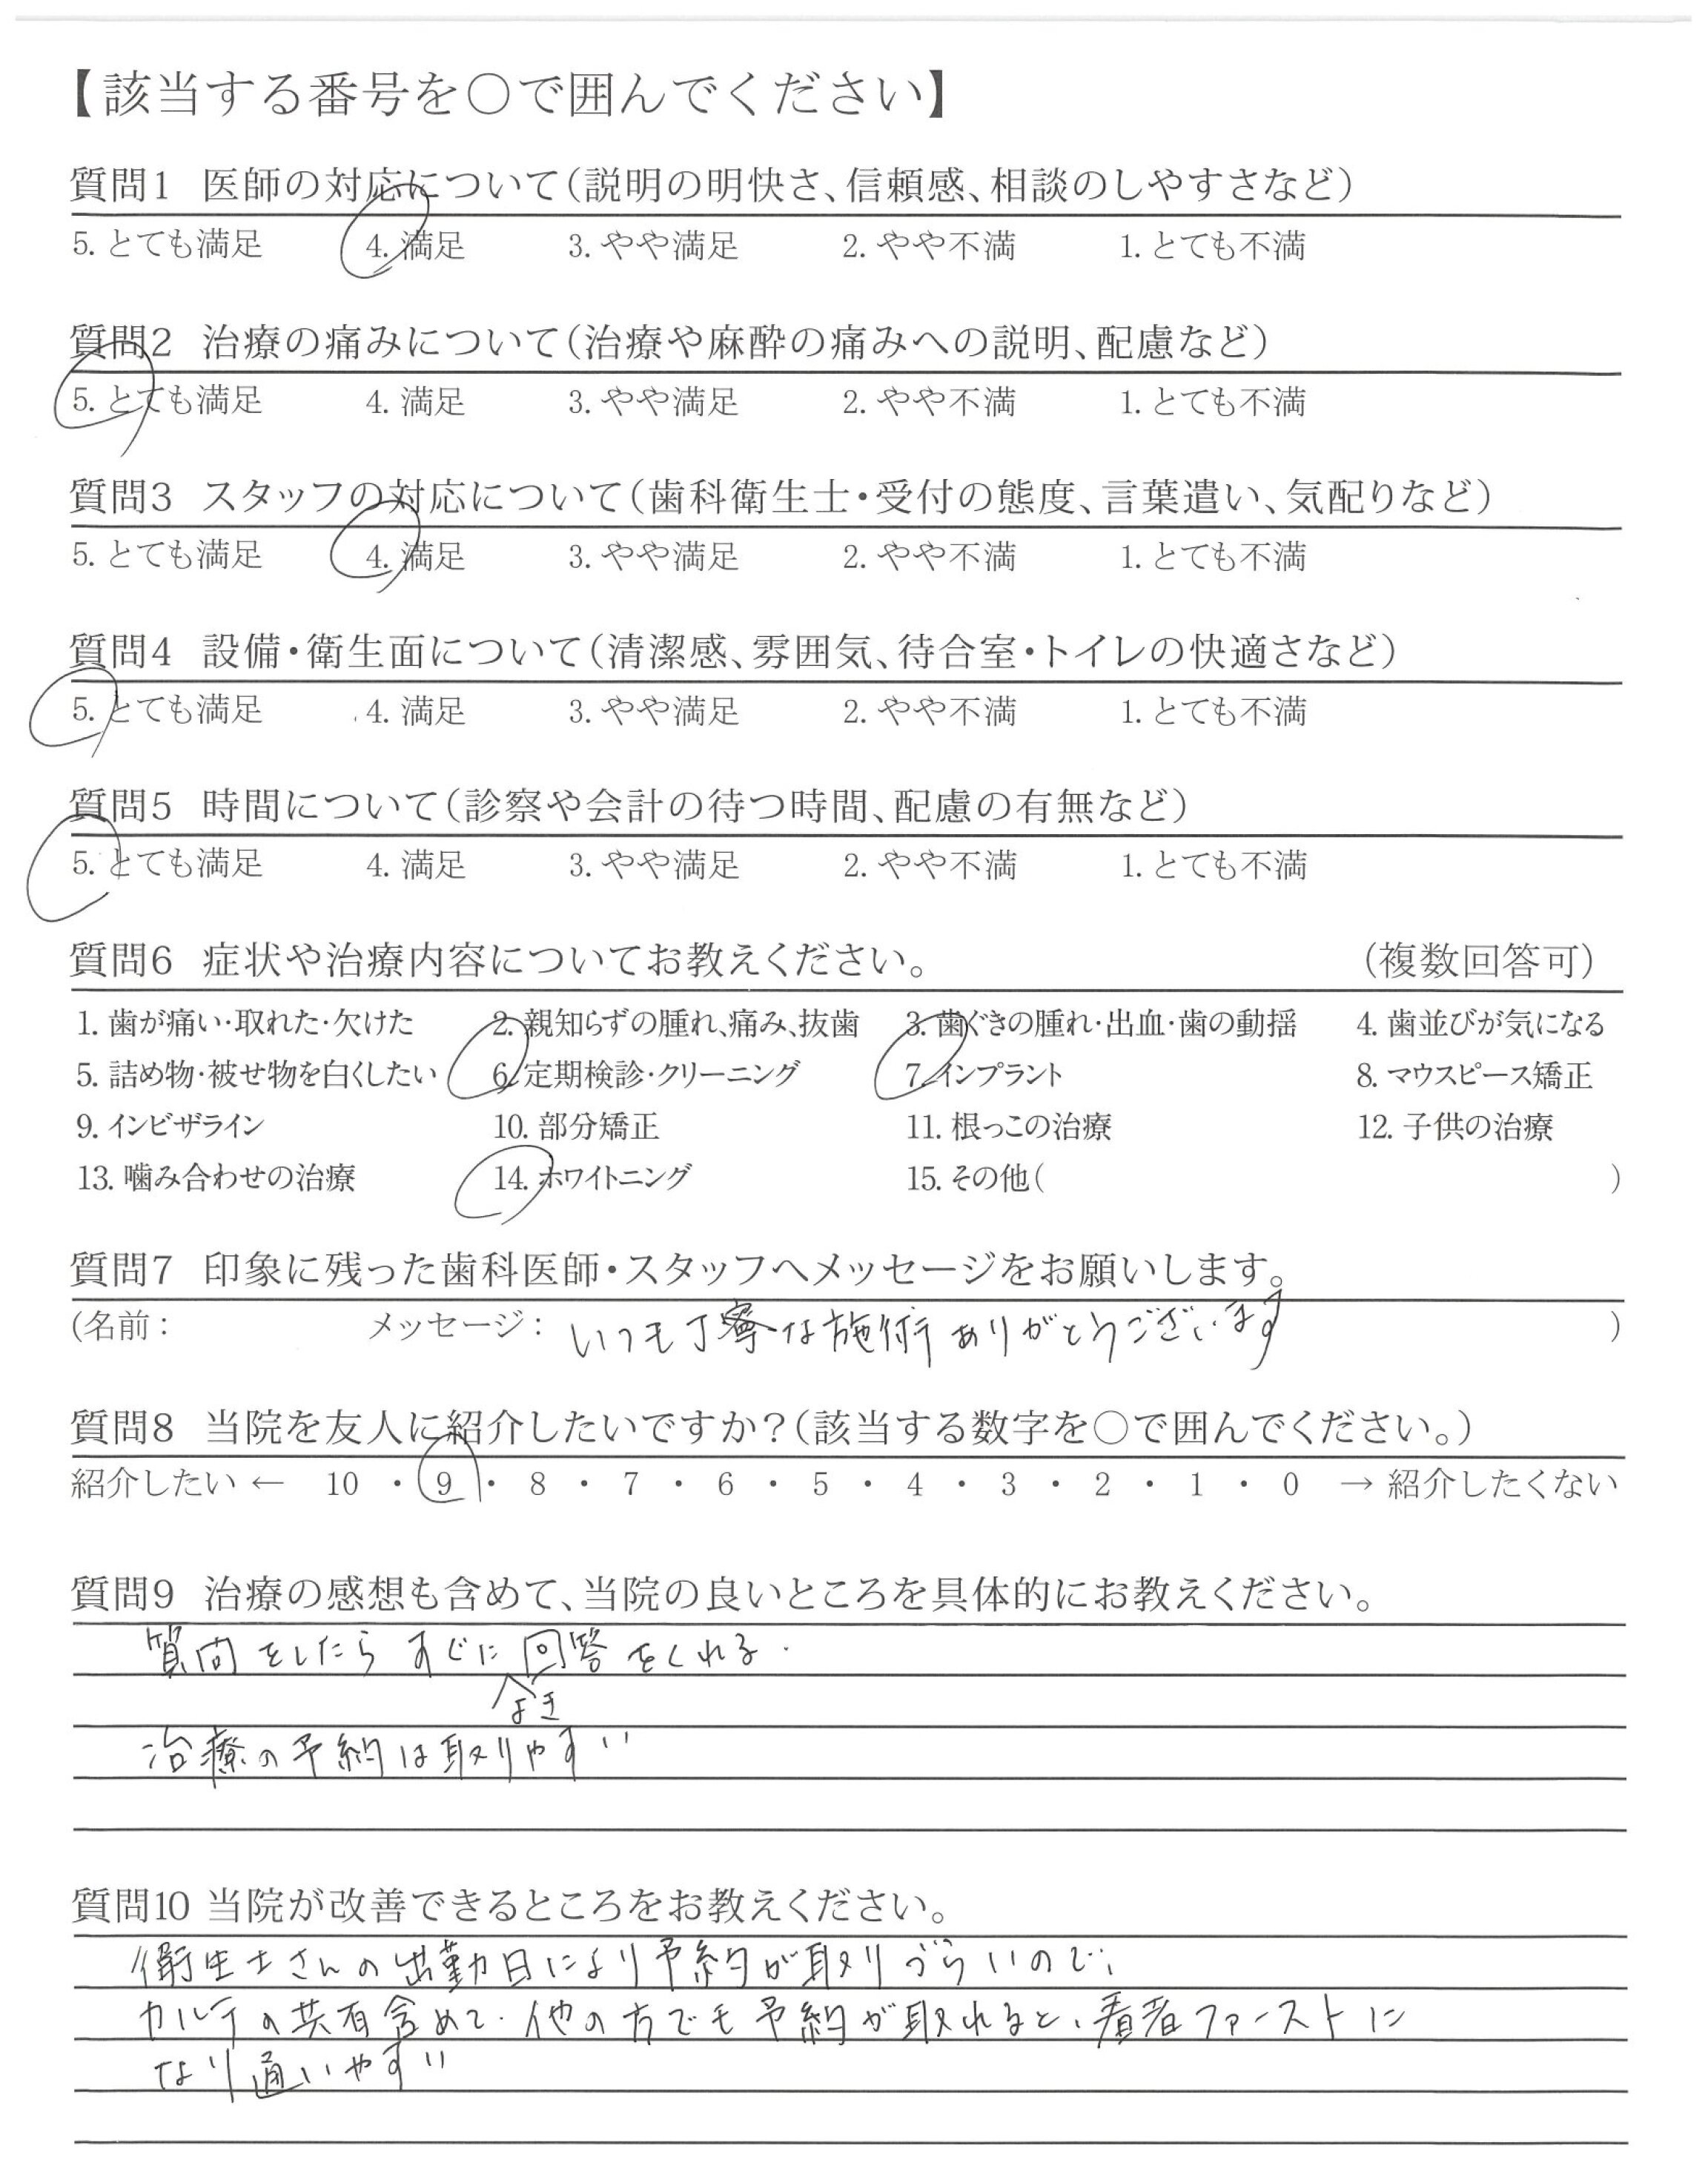 【該当する番号を○で囲んでください】
質問1 医師の対応について(説明の明快さ、信頼感、相談のしやすさなど)
5. とても満足 4. 満足 3. やや満足 2. やや不満 1. とても不満
質問2 治療の痛みについて(治療や麻酔の痛みへの説明、配慮など)
5. とても満足 4. 満足 3. やや満足 2. やや不満 1. とても不満
質問3 スタッフの対応について(歯科衛生士・受付の態度、言葉遣い、気配りなど)
5. とても満足 4. 満足 3. やや満足 2. やや不満 1. とても不満
質問4 設備・衛生面について(清潔感、雰囲気、待合室・トイレの快適さなど)
5. とても満足 4. 満足 3. やや満足 2. やや不満 1. とても不満
質問5 時間について(診察や会計の待つ時間、配慮の有無など)
5. とても満足 4. 満足 3. やや満足 2. やや不満 1. とても不満
質問6 症状や治療内容についてお教えください。 (複数回答可)
1. 歯が痛い・取れた・欠けた 2. 親知らずの腫れ、痛み、抜歯 3. 歯ぐきの腫れ・出血・歯の動揺 4. 歯並びが気になる
5. 詰め物・被せ物を白くしたい 6. 定期検診・クリーニング 7. インプラント 8. マウスピース矯正
9. インビザライン 10. 部分矯正 11. 根っこの治療 12. 子供の治療
13. 噛み合わせの治療 14. ホワイトニング 15. その他( )
質問7 印象に残った歯科医師・スタッフへメッセージをお願いします。
(名前: メッセージ: いつも丁寧な施術ありがとうございます )
質問8 当院を友人に紹介したいですか?(該当する数字を○で囲んでください。)
紹介したい ← 10 ・ 9 ・ 8 ・ 7 ・ 6 ・ 5 ・ 4 ・ 3 ・ 2 ・ 1 ・ 0 → 紹介したくない
質問9 治療の感想も含めて、当院の良いところを具体的にお教えください。
質問をしたらすぐに回答をくれる.
治療の予約は取りやすい
質問10 当院が改善できるところをお教えください。
衛生士さんの出勤日により予約が取りづらいので、
カルテの共有含めて、他の方でも予約が取れると、患者ファーストに
なり通いやすい